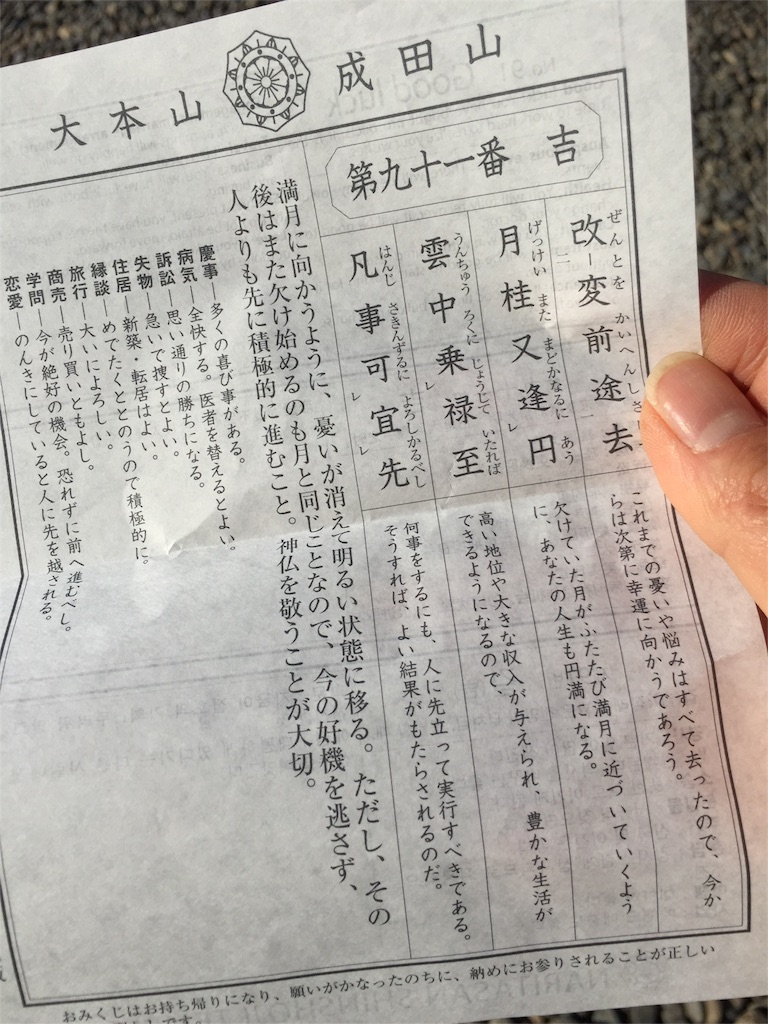 大本山 成田山
第九十一番 吉
改変前途去
ぜんとを かいへんしさ
月桂又逢円
げっけい また まどかなるに あう
雲中乗禄至
うんちゅう ろくに じょうじて いたれば
凡事可宜先
はんじ さきんずるに よろしかるべし
これまでの憂いや悩みはすべて去ったので、今か
らは次第に幸運に向かうであろう。
欠けていた月がふたたび満月に近づいていくよう
に、あなたの人生も円満になる。
高い地位や大きな収入が与えられ、豊かな生活が
できるようになるので、
何事をするにも、人に先立って実行すべきである。
そうすれば、よい結果がもたらされるのだ。
満月に向かうように、憂いが消えて明るい状態に移る。ただし、その
後はまた欠け始めるのも月と同じことなので、今の好機を逃さず、
人よりも先に積極的に進むこと。神仏を敬うことが大切。
慶事―多くの喜び事がある。
病気―全快する。医者を替えるとよい。
訴訟―思い通りの勝ちになる。
失物―急いで捜すとよい。
住居―新築・転居はよい。
縁談―めでたくととのうので積極的に。
旅行―大いによろしい。
商売―売り買いともよし。
学問―今が絶好の機会。恐れずに前へ進むべし。
恋愛―のんきにしていると人に先を越される。
おみくじはお持ち帰りになり、願いがかなったのちに、納めにお参りされることが正しい
No.91 Good luck